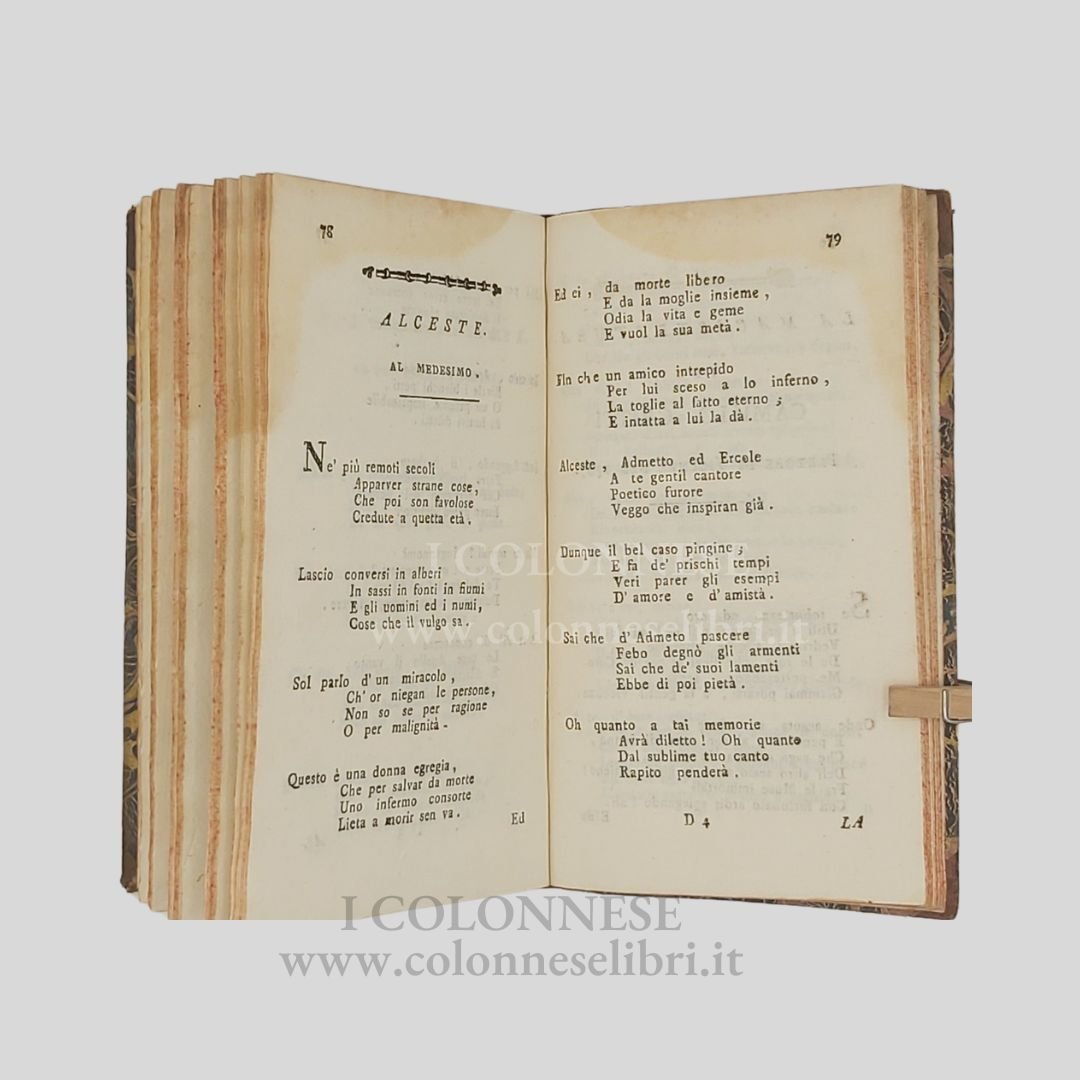 78
ALCESTE.
AL MEDESIMO.
Ne' più remoti secoli
Apparver strane cose,
Che poi son favolose
Credute a questa età.
Lascio conversi in alberi
In sassi in fonti in fiumi
E gli uomini ed i numi,
Cose che il vulgo sa.
Sol parlo d' un miracolo,
Ch' or niegan le persone,
Non so se per ragione
O per malignità.
Questo è una donna egregia,
Che per salvar da morte
Uno infermo consorte
Lieta a morir sen va.
Ed
79
Ed ei, da morte libero
E da la moglie insieme,
Odia la vita e geme
E vuol la sua metà.
Fin che un amico intrepido
Per lui sceso a lo inferno,
La toglie al fatto eterno;
E intatta a lui la dà.
Alceste, Admetto ed Ercole
A te gentil cantore
Poetico furore
Veggo che inspiran già.
Dunque il bel caso pingine;
E fa de' prischi tempi
Veri parer gli esempi
D' amore e d' amistà.
Sai che d' Admeto pascere
Febo degnò gli armenti
Sai che de' suoi lamenti
Ebbe di poi pietà.
Oh quanto a tai memorie
Avrà diletto! Oh quanto
Dal sublime tuo canto
Rapito penderà.
D 4
LA
I COLONNESE
www.colonneselibri.it
I COLONNESE
www.colonneselibri.it